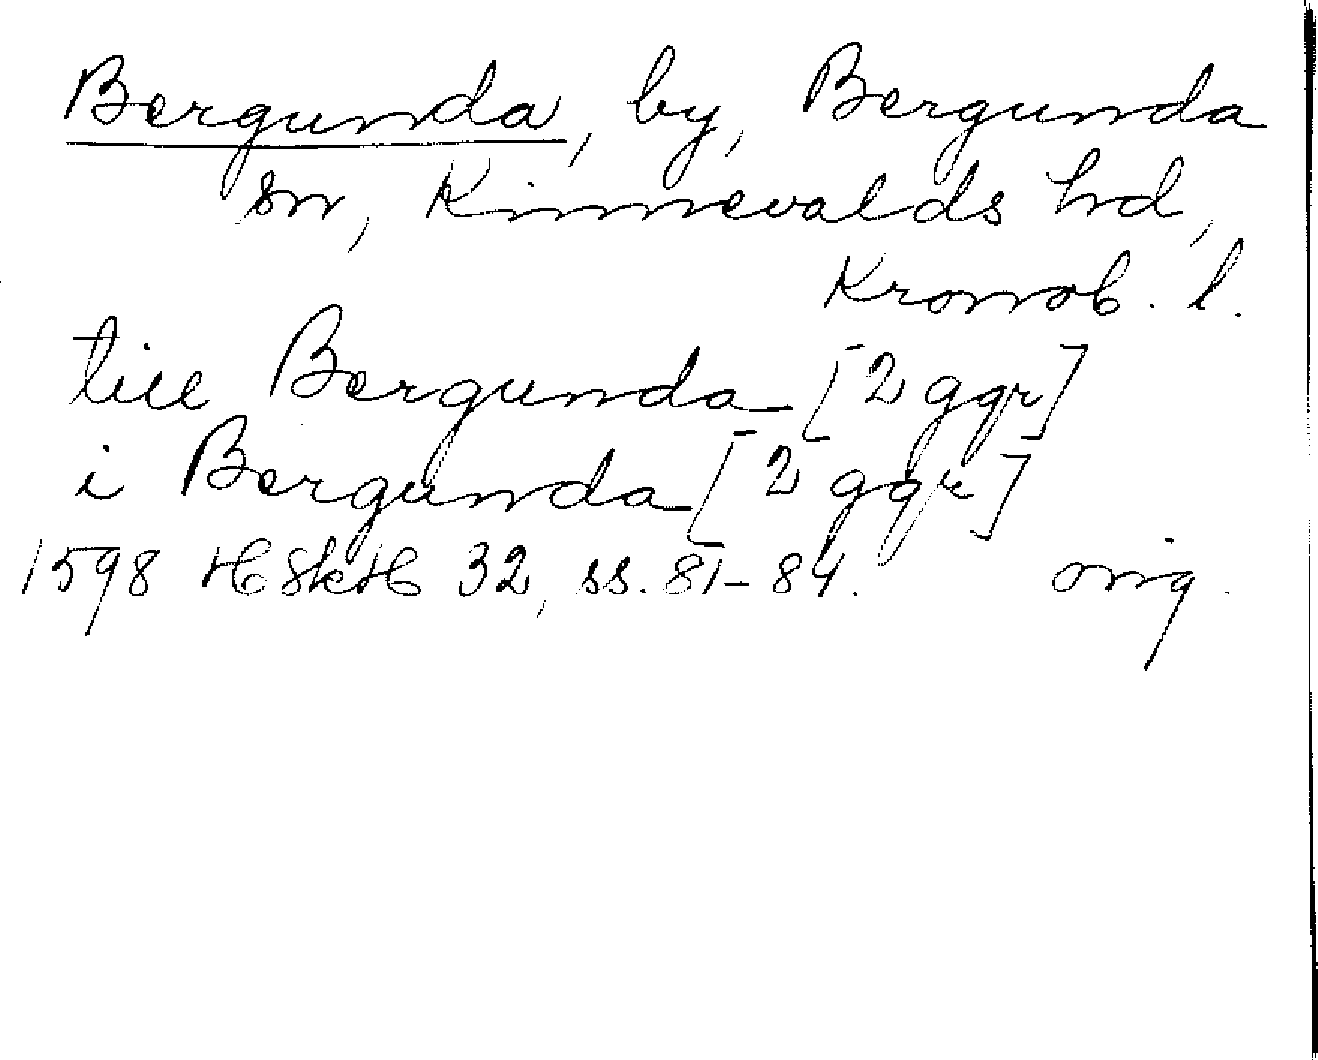 Bergunda, by, Bergunda
sn, Kinnevalds hd,
Kronob. l.
till Bergunda [2 ggr]
i Bergunda [2 ggr]
1598 HSkH 32, ss. 81-84. orig.